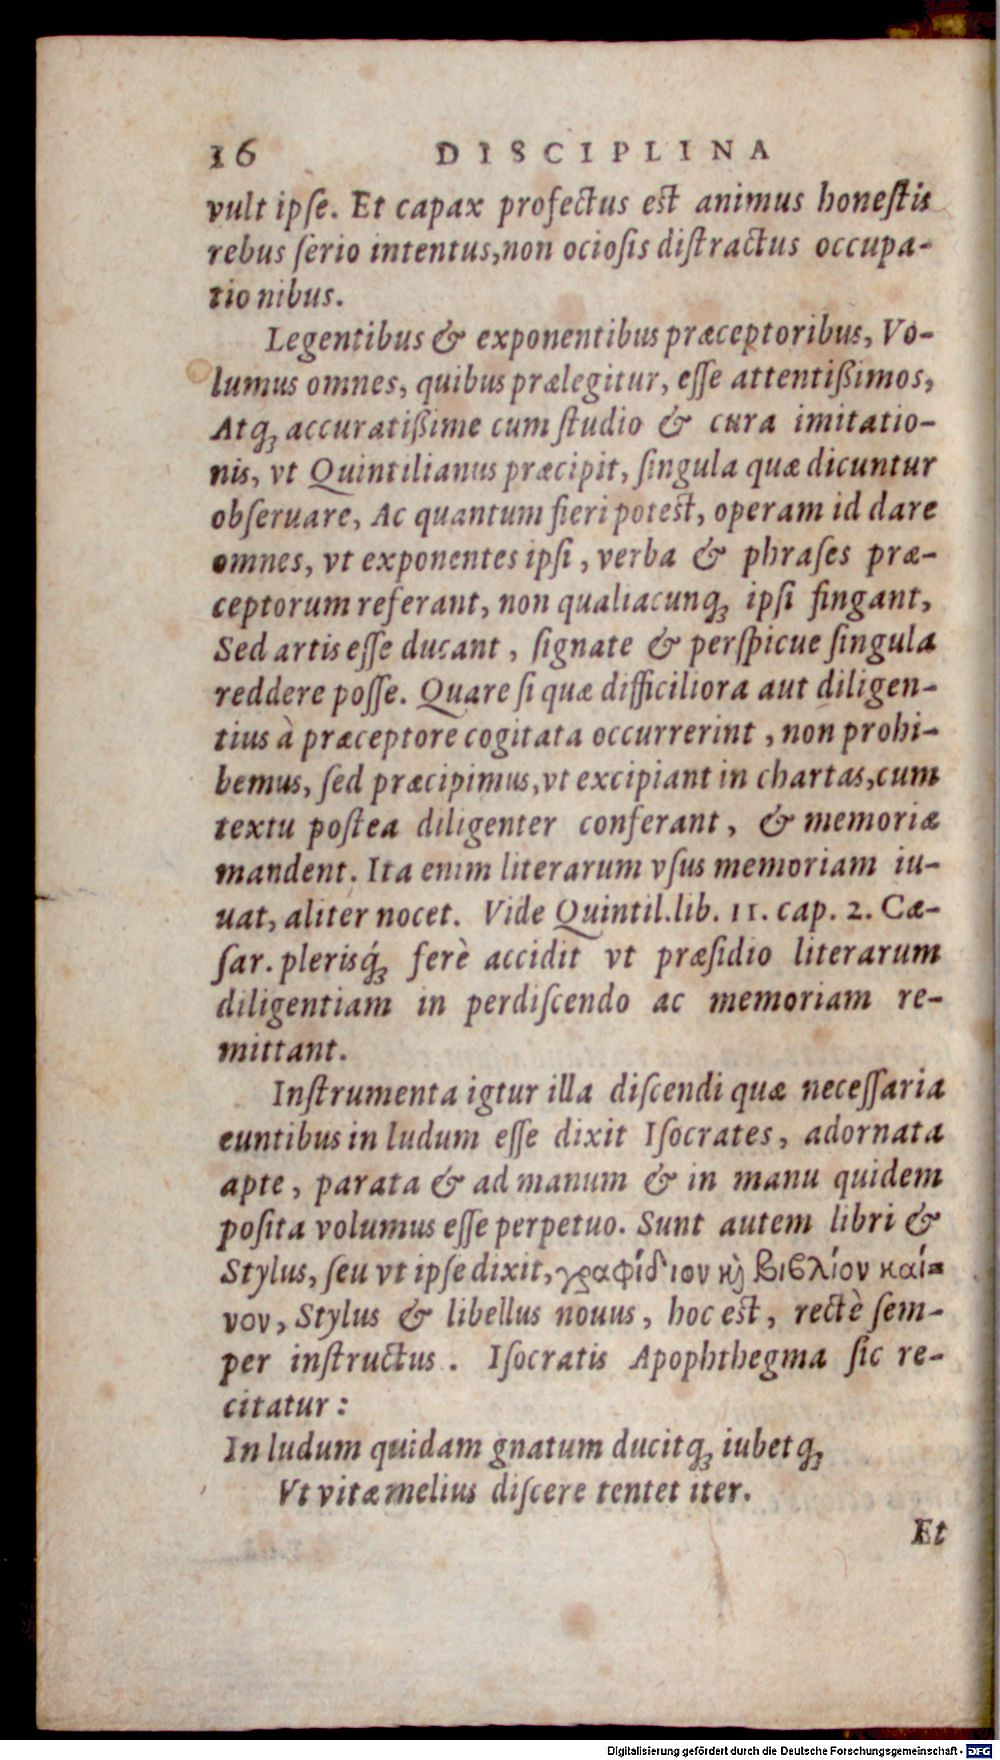 16 DISCIPLINA
vult ipſe. Et capax profectus est animus honeſtis
rebus ſerio intentus,non ocioſis diſtractus occupa-
tio nibus.
Legentibus & exponentibus præceptoribus, Vo-
lumus omnes, quibus prælegitur, eſſe attentißimos,
Atq́ꝫ accuratißime cum ſtudio & cura imitatio-
nis, vt Quintilianus præcipit, ſingula quæ dicuntur
obſeruare, Ac quantum fieri potest, operam id dare
omnes, vt exponentes ipſi, verba & phraſes præ-
ceptorum referant, non qualiacunqꝫ ipſi fingant,
Sed artis eſſe ducant, ſignate & perſpicue ſingula
reddere poſſe. Quare ſi quæ difficiliora aut diligen-
tius à præceptore cogitata occurrerint, non prohi-
bemus, ſed præcipimus,vt excipiant in chartas,cum
textu poſtea diligenter conferant, & memoriæ
mandent. Ita enim literarum vſus memoriam iu-
uat, aliter nocet. Vide Quintil.lib. 11. cap. 2. Cæ-
ſar. plerisq́ꝫ ferè accidit vt præſidio literarum
diligentiam in perdiſcendo ac memoriam re-
mittant.
Inſtrumenta igtur illa diſcendi quæ neceſſaria
euntibus in ludum eſſe dixit Iſocrates, adornata
apte, parata & ad manum & in manu quidem
poſita volumus eſſe perpetuo. Sunt autem libri &
Stylus, ſeu vt ipſe dixit, γραφίδιον ϗ̀ βιβλίον καί-
νον, Stylus & libellus nouus, hoc est, rectè ſem-
per inſtructus. Iſocratis Apophthegma ſic re-
citatur:
In ludum quidam gnatum ducitqꝫ iubetqꝫ
Vt vitæ melius diſcere tentet iter.
Et
Digitalisierung gefördert durch die Deutsche Forschungsgemeinschaft - DFG